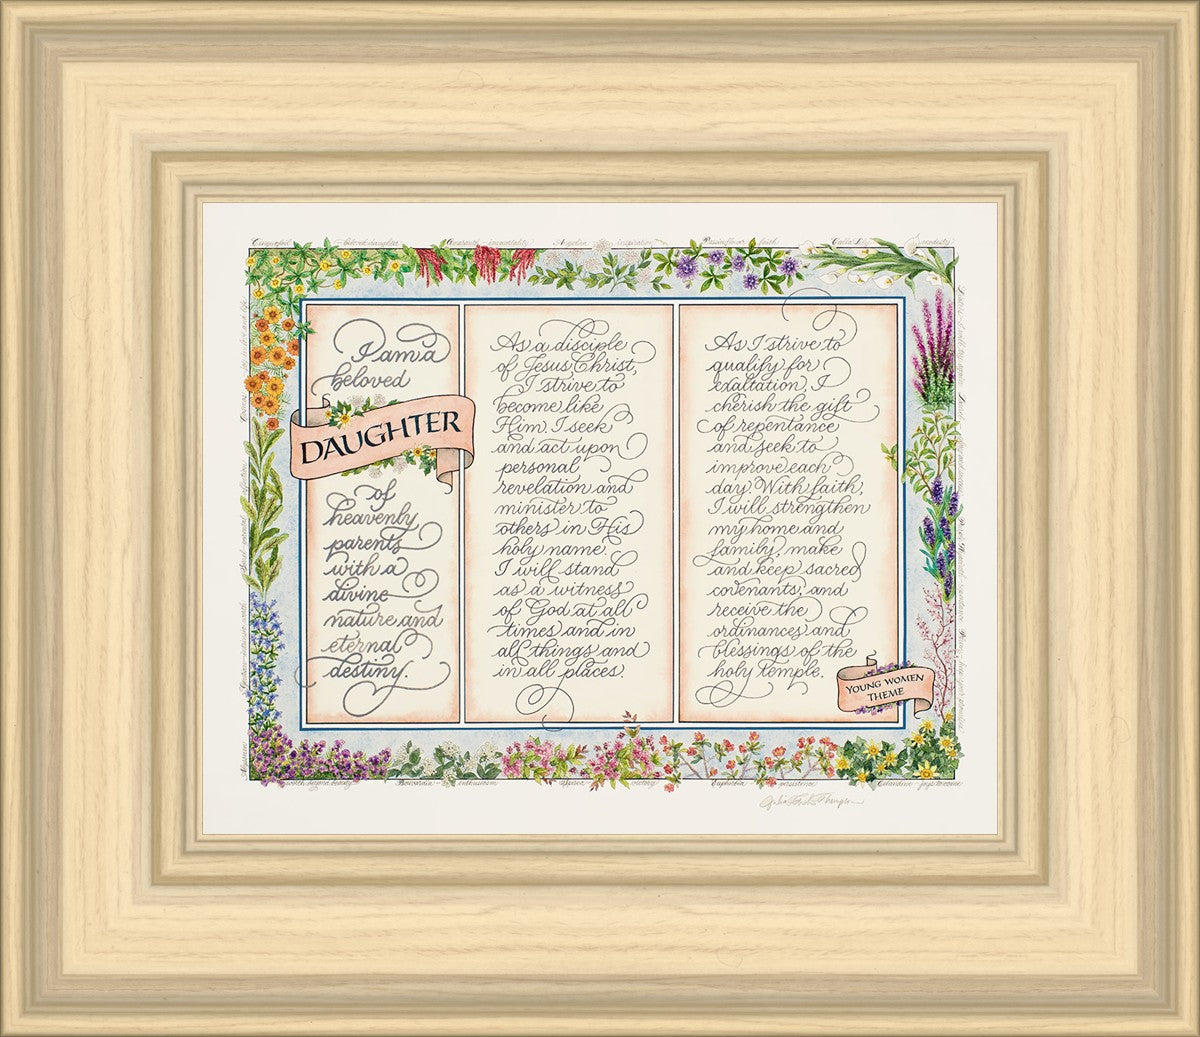 Cinquefoil – beloved daughter
inspiration
Passionflower
Calla Lily
I am a
beloved
DAUGHTER
of
heavenly
parents
with a
divine
nature and
eternal
destiny.
As a disciple
of Jesus Christ,
I strive to
become like
Him. I seek
and act upon
personal
revelation and
minister to
others in His
holy name.
I will stand
as a witness
of God at all
times and in
all things and
in all places.
As I strive to
qualify for
exaltation, I
cherish the gift
of repentance
and seek to
improve each
day. With faith,
I will strengthen
my home and
family, make
and keep sacred
covenants, and
receive the
ordinances and
blessings of the
holy temple.
YOUNG WOMEN
THEME
Bouvardia – enthusiasm
victory
Euphorbia – persistence
Celandine – joys to come